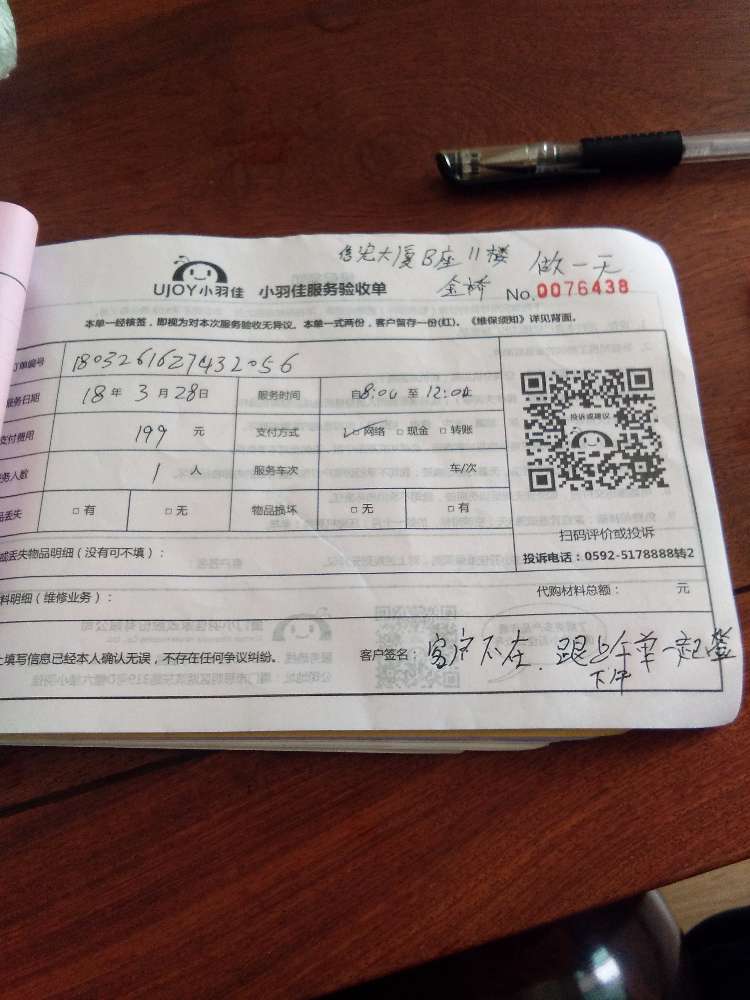 大厦B座11楼 做一天
UJOY小羽佳 小羽佳服务验收单 金桥 No.0076438
本单一经核签，即视为对本次服务验收无异议。本单一式两份，客户留存一份(红)。《维保须知》详见背面。
订单编号 1803261627432056
服务日期 18年3月28日 服务时间 自8:00至12:00止
支付费用 199元 支付方式 ✓□网络 □现金 □转账
务人数 1人 服务车次 车/次
品丢失 □有 □无 物品损坏 □无 □有
投诉或建议
扫码评价或投诉
投诉电话：0592-5178888转2
或丢失物品明细（没有可不填）：
料明细（维修业务）： 代购材料总额： 元
上填写信息已经本人确认无误，不存在任何争议纠纷。 客户签名：客户不在，跟上午单一起签
下午